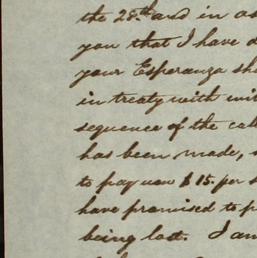 the 28th and in as
you that I have d
your Esperanza sh
in treaty with wit
sequence of the cal
has been made,
to pay you $15. per s
have promised to p
being lost. I am